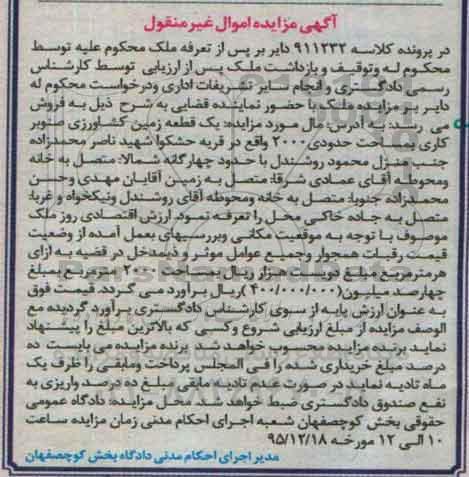 آگهی مزایده اموال غیر منقول
در پرونده کلاسه ۹۱۱۲۳۲ دایر بر پس از تعرفه ملک محکوم علیه توسط
محکوم له وتوقیف و بازداشت ملک پس از ارزیابی توسط کارشناس
رسمی دادگستری و انجام سایر تشریفات اداری ودرخواست محکوم له
دایر بر مزایده ملک با حضور نماینده قضایی به شرح ذیل به فروش
می رسد: به آدرس: مال مورد مزایده: یک قطعه زمین کشاورزی صنوبر
کاری بمساحت حدودی ۲۰۰۰ واقع در قریه حشکوا شهید ناصر محمدزاده
جنب منزل محمود روشندل با حدود چهارگانه شمالا: متصل به خانه
ومحوطه آقای عمادی شرقا: متصل به زمین آقایان مهدی وحسن
محمدزاده جنوبا: متصل به خانه ومحوطه آقای روشندل ونیکخواه و غربا:
متصل به جاده خاکی محل را تعرفه نمود. ارزش اقتصادی روز ملک
موصوف با توجه به موقعیت مکانی وبررسیهای بعمل آمده از وضعیت
قیمت رقبات همجوار وجمیع عوامل موثر و ذیمدخل در قضیه به ازای
هرمترمربع مبلغ دویست هزار ریال بمساحت ۲۰۰۰ مترمربع بمبلغ
چهارصد میلیون(۴۰۰/۰۰۰/۰۰۰)ریال برآورد می گردد. قیمت فوق
به عنوان ارزش پایه از سوی کارشناس دادگستری برآورد گردیده مع
الوصف مزایده از مبلغ ارزیابی شروع و کسی که بالاترین مبلغ را پیشنهاد
نماید برنده مزایده محسوب خواهد شد برنده مزایده می بایست ده
درصد مبلغ خریداری شده را فی المجلس پرداخت ومابقی را ظرف یک
ماه تادیه نماید در صورت عدم تادیه مابقی مبلغ ده درصد واریزی به
نفع صندوق دادگستری ضبط خواهد شد. محل مزایده: دادگاه عمومی
حقوقی بخش کوچصفهان شعبه اجرای احکام مدنی زمان مزایده ساعت
۱۰ الی ۱۲ مورخه ۹۵/۱۲/۱۸
مدیر اجرای احکام مدنی دادگاه بخش کوچصفهان